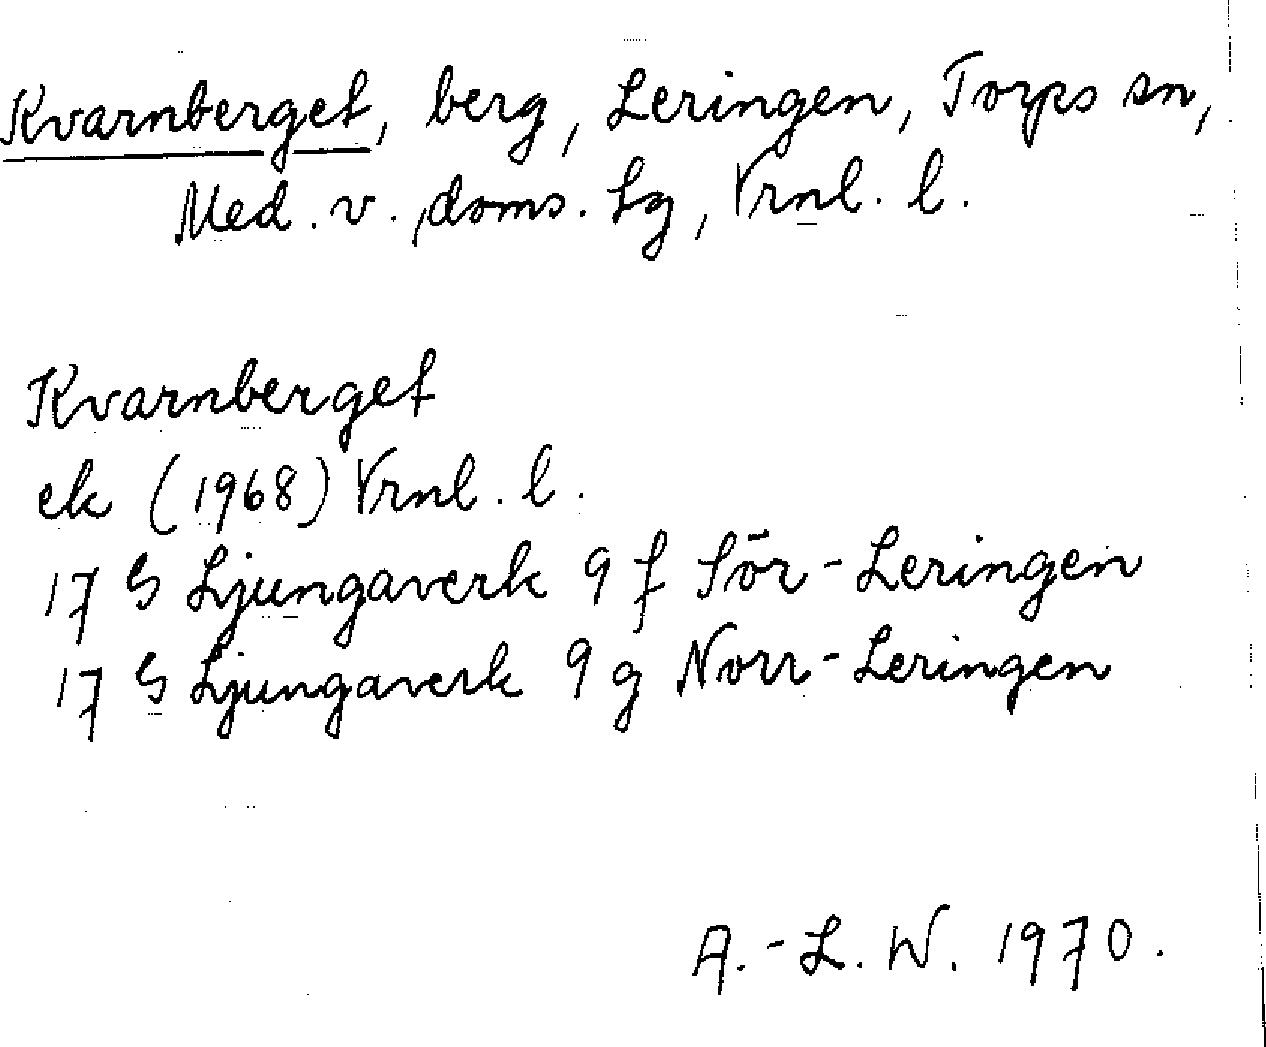 Kvarnberget, berg, Leringen, Torps sn,
Med. v. doms. hg, Vrnl. l.
Kvarnberget
ek (1968) Vrnl. l.
17 G Ljungaverk 9 f Sör-Leringen
17 G Ljungaverk 9 g Norr-Leringen
A.-L. W. 1970.